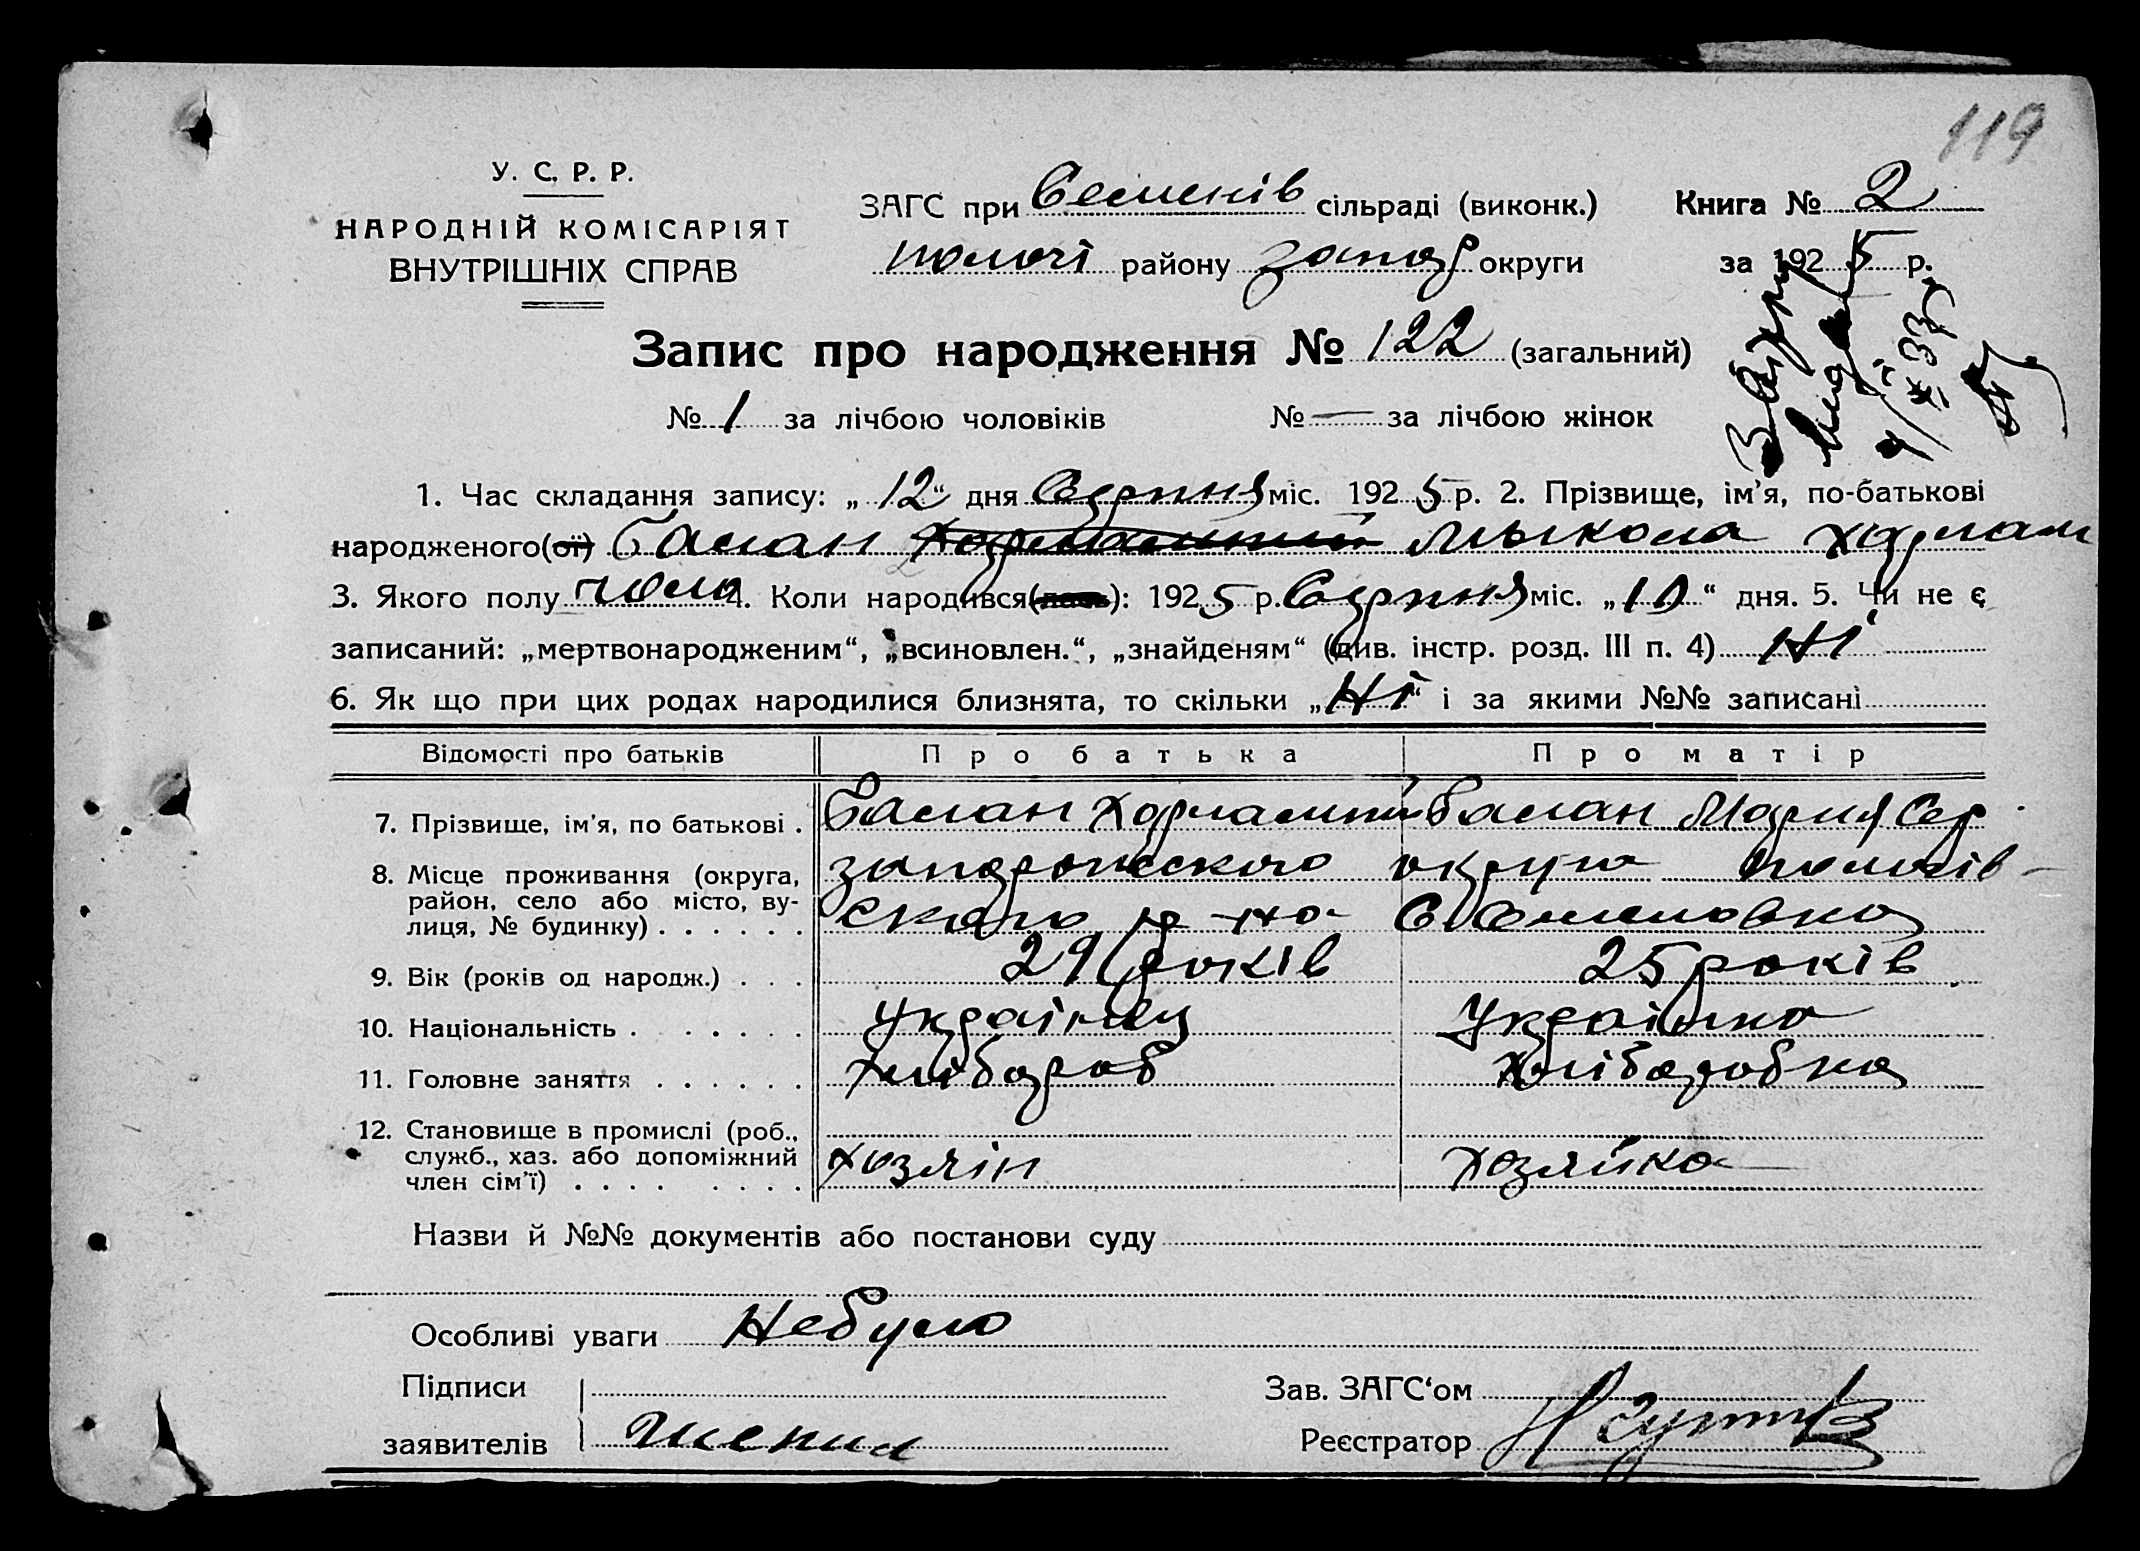 119
У. С. Р. Р.
НАРОДНІЙ КОМІСАРІЯТ
ВНУТРІШНІХ СПРАВ
ЗАГС при Семенів сільраді (виконк.)
Пологі району Запор округи
Книга № 2
за 1925 р.
Запис про народження № 122 (загальний)
№ 1 за лічбою чоловіків № — за лічбою жінок
1. Час складання запису: „12“ дня Серпня міс. 1925 р. 2. Прізвище, ім’я, по-батькові
народженого(ої) Балан Микола Харлам
3. Якого полу чоло 4. Коли народився(лась): 1925 р. Серпня міс. „10“ дня. 5. Чи не є
записаний: „мертвонародженим“, „всиновлен.“, „знайденям“ (див. інстр. розд. III п. 4) Ні
6. Як що при цих родах народилися близнята, то скільки „Ні“ і за якими №№ записані
Відомості про батьків Про батька Про матір
7. Прізвище, ім’я, по батькові . Балан Харлампий Балан Мария Сер
8. Місце проживання (округа, район, село або місто, вулиця, № будинку) . . . . . . Запорожского округа Пологів-
ского р-на С Семеновка
9. Вік (років од народж.) . . . 29 років 25 років
10. Національність . . . . . . Українец Українка
11. Головне заняття . . . . . . Хлібороб Хліборобка
12. Становище в промислі (роб., служб., хаз. або допоміжний член сім’ї) . . . . . . . . Хозяін Хозяйка
Назви й №№ документів або постанови суду
Особливі уваги Небуло
Підписи
заявителів
Зав. ЗАГС‘ом
Реєстратор